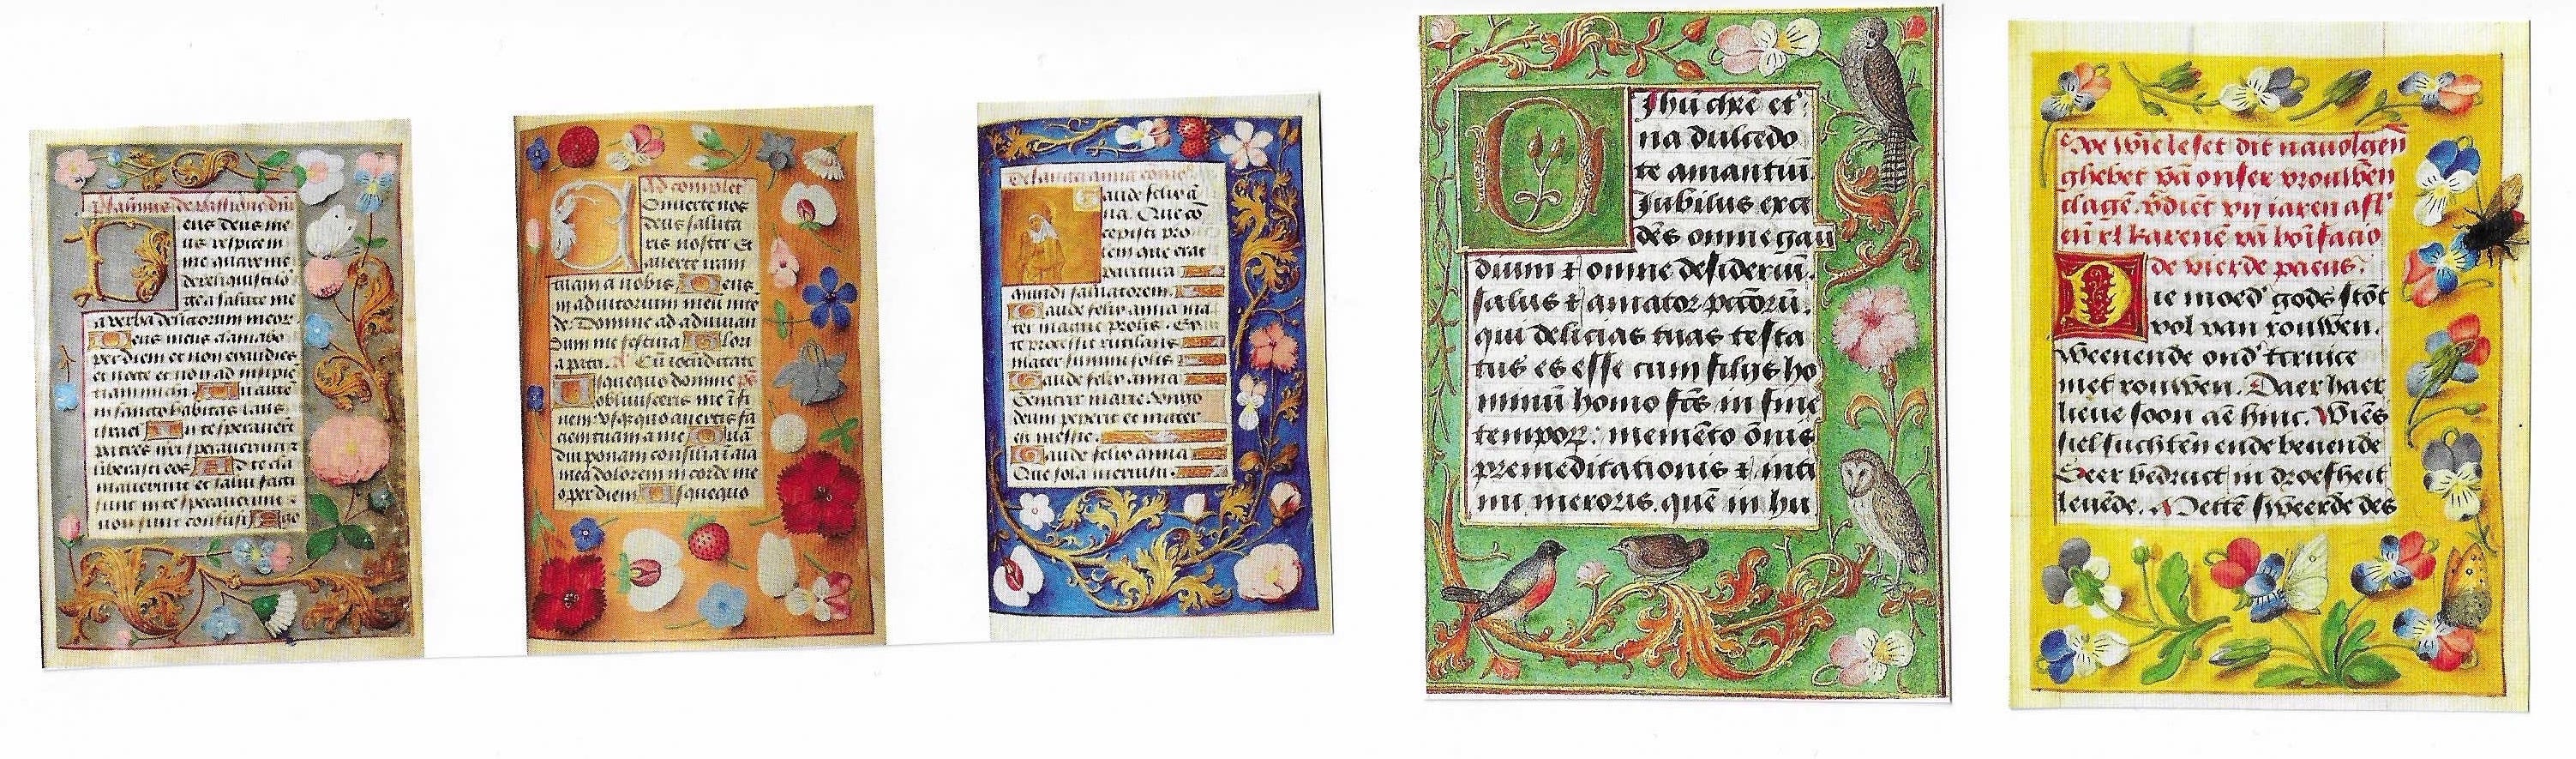 Psalmus de passione dn̄i
eus deus me
us respice in
me quare me
dereliquisti lō
ge a salute me
a verba delictorum meor
Deus meus clamabo
per diem et non exaudies
et nocte et non ad insipiē
tiam michi. Tu autē
in sancto habitas laus
israel In te speraverūt
patres nr̄i speraverunt ⁊
liberasti eos Ad te cla
maverunt et salvi facti
sunt in te speraverunt ⁊
non sunt confusi Ego
Ad complet
Converte nos
deus saluta
ris noster Et
averte iram
tuam a nobis Deus
in adiutorium meū inte
de Domine ad adiuvan
dum me festina Glori
a patri. Cū iocūditate
Usquequo domine
oblivisceris me ī fi
nem usquequo avertis fa
ciem tuam a me Quā
diu ponam consilia ī aīa
mea dolorem in corde me
o per diem Usquequo
De sancta anna
Gaude felix ā
na. Que cō
cepisti pro
lem que erat
paritura
mundi salvatorem.
Gaude felix anna ma
ter magne prolis.
te processit rutilans
mater summi solis
Gaude felix anna
Genitrix marie
deum peperit et mater
est messie.
Gaude felix anna
Que sola meruisti.
O Ihū chr̄e et
na dulcedo
te amantiū.
Iubilus exce
dēs omne gau
dium ⁊ omne desideriū.
salus ⁊ amator pctōrū.
qui delicias tuas testa
tus es esse cum filijs ho
minū homo fc̄s in fine
tempor̄: memēto ōnis
premeditationis ⁊ inti
mi meroris. quē in hu
Soe wie leset dit navolgen̄
ghebet vā onser vrouwen
clagē. v̄diēt vij iaren afl
en̄ xl karenē vā bonifacio
de vierde paeus.
Die moed' gods stōt
vol van rouwen.
Weenende ond' tcruice
met rouwen. Daer haer
lieve soon aē hinc. Wiēs
siel suchtēn ende bevende
Seer bedruct in droefheit
levēde. Mettē sweerde des